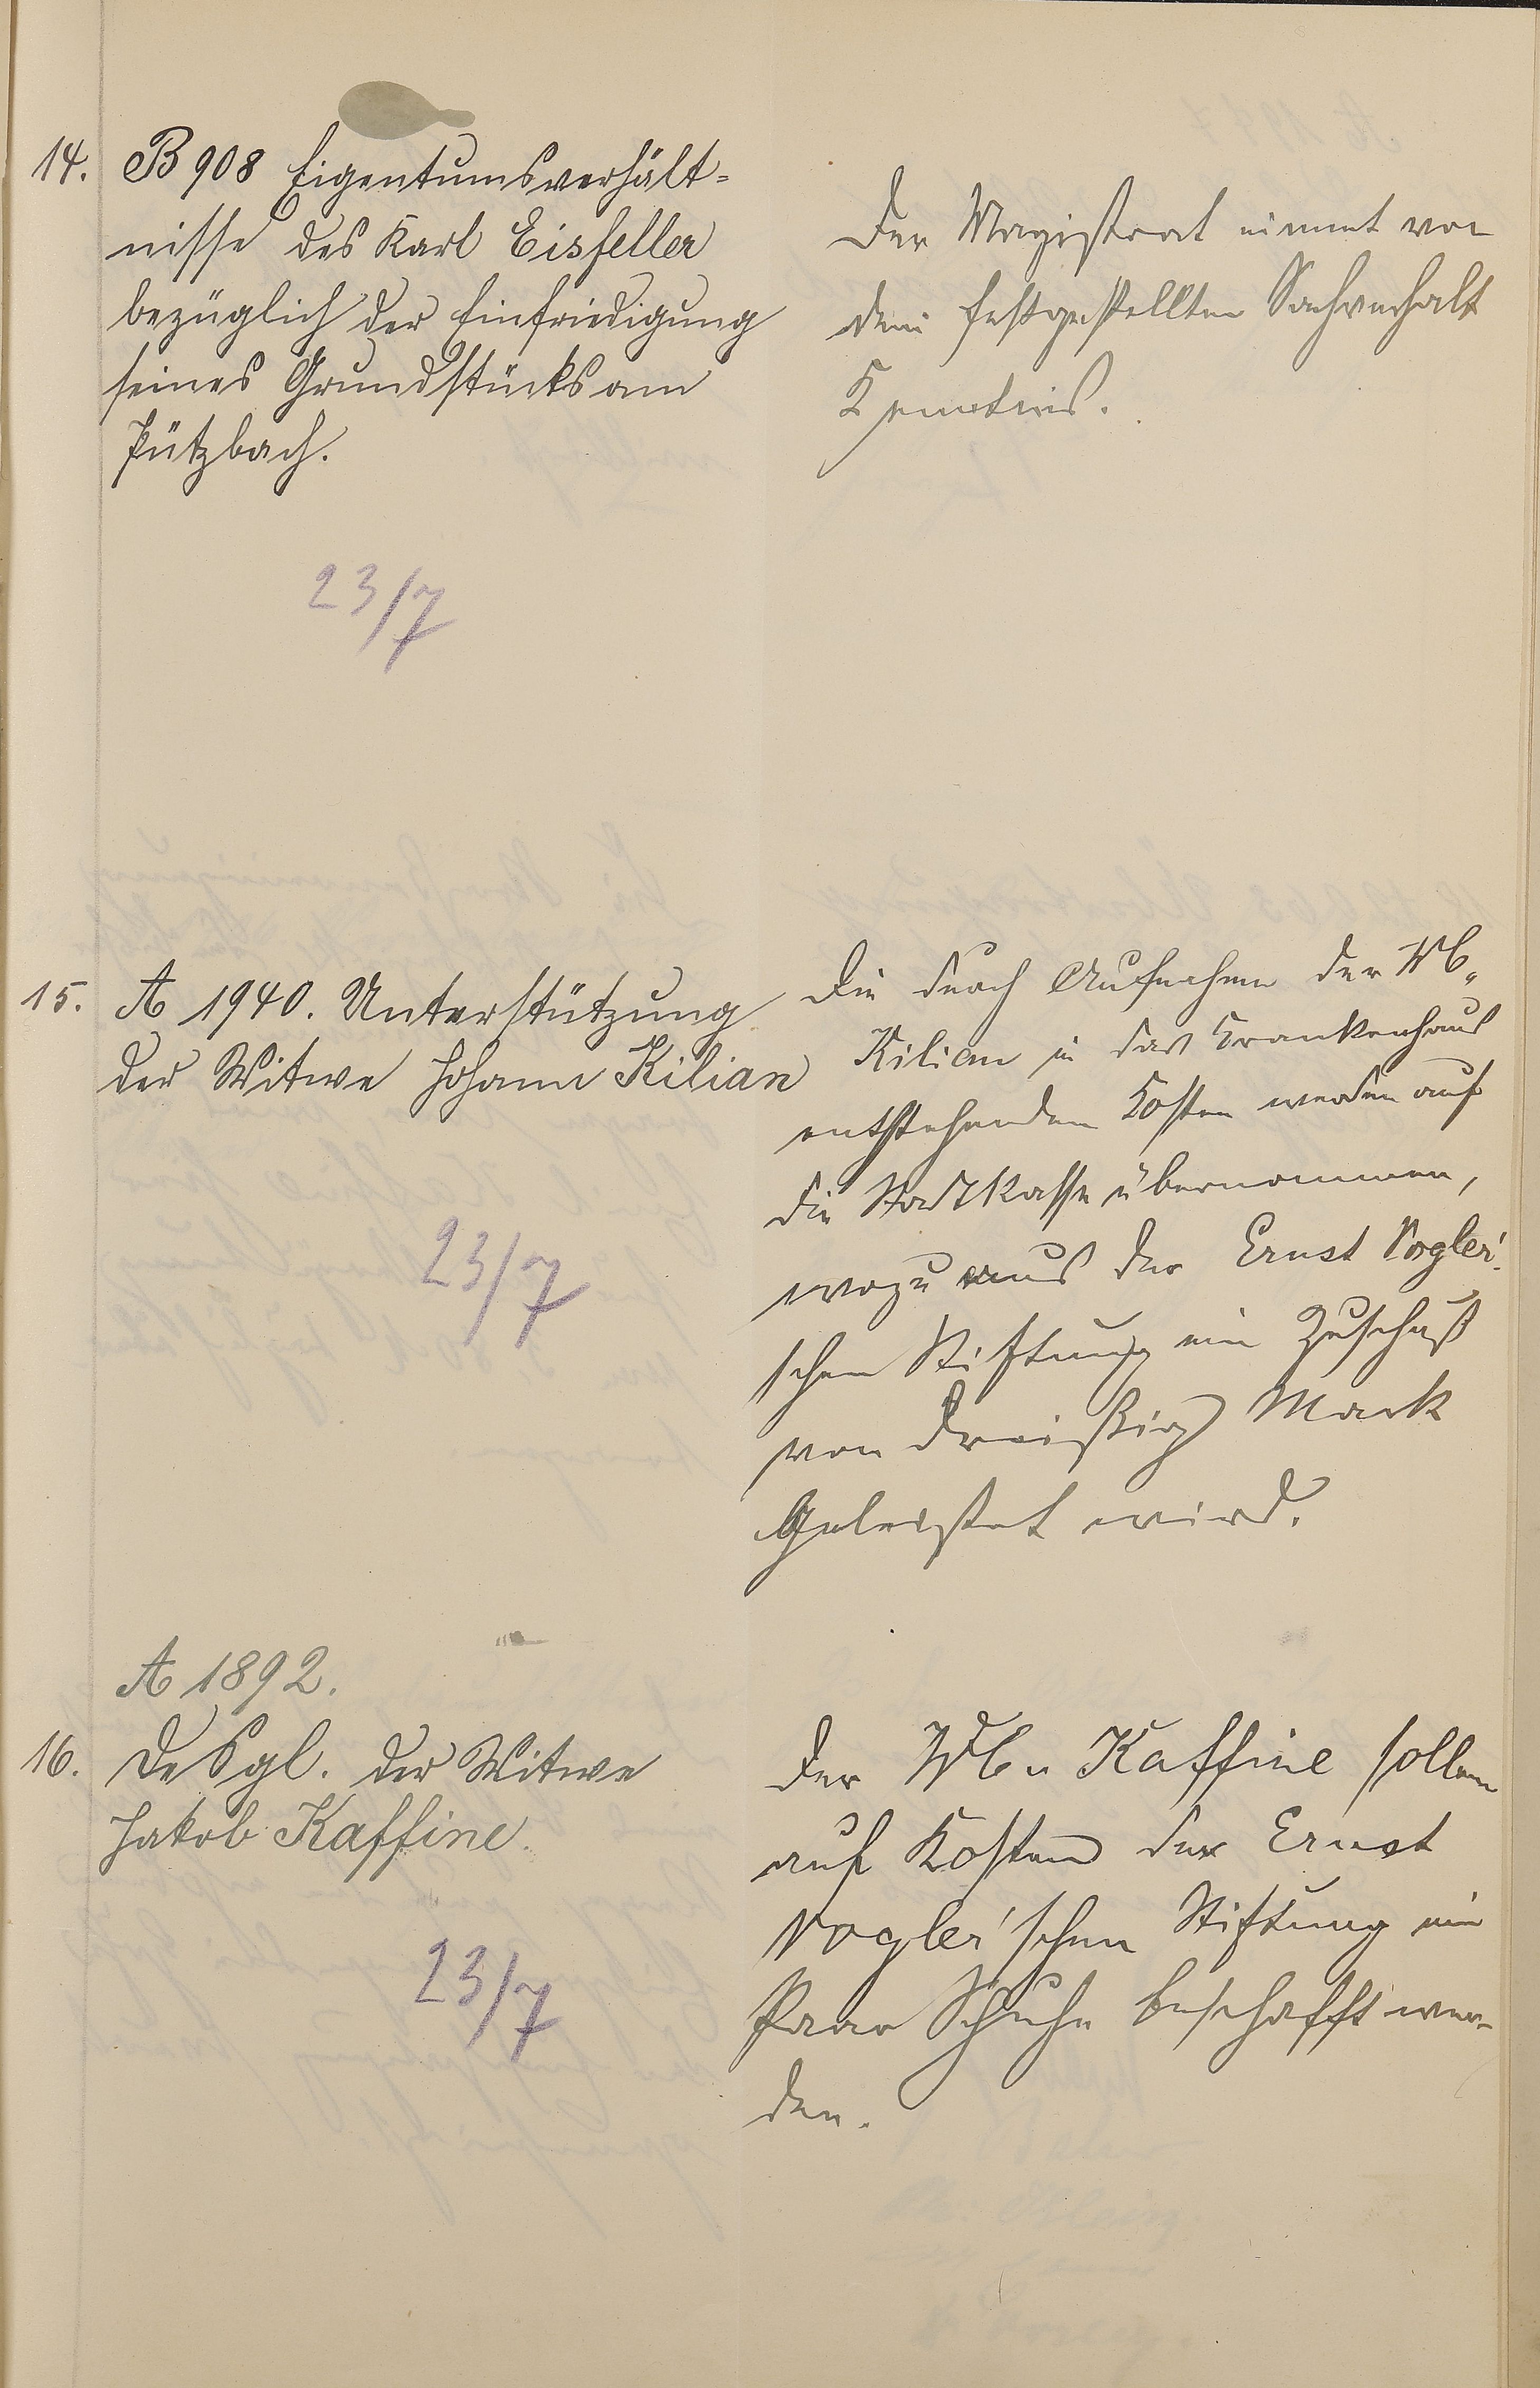 14. B 908 Eigentumsverhält-
nisse des Karl Eisfeller
bezüglich der Einfriedigung
seines Grundstücks am
Pützbach.
23/7
Der Magistrat nimmt von
dem festgestellten Sachverhalt
Kenntnis.
15. A 1940. Unterstützung
der Witwe Johann Kilian
23/7
Die durch Aufnahme der Wb.
Kilian in das Krankenhaus
entstehenden Kosten werden auf
die Stadtkasse übernommen,
wozu aus der Ernst Vogler'
schen Stiftung ein Zuschuß
von dreißig Mark
geleistet wird.
A 1892.
16. Desgl. der Witwe
Jakob Kaffine.
23/7
Der Wb. Kaffine sollen
auf Kosten der Ernst
Vogler'schen Stiftung ein
Paar Schuhe beschafft wer-
den.